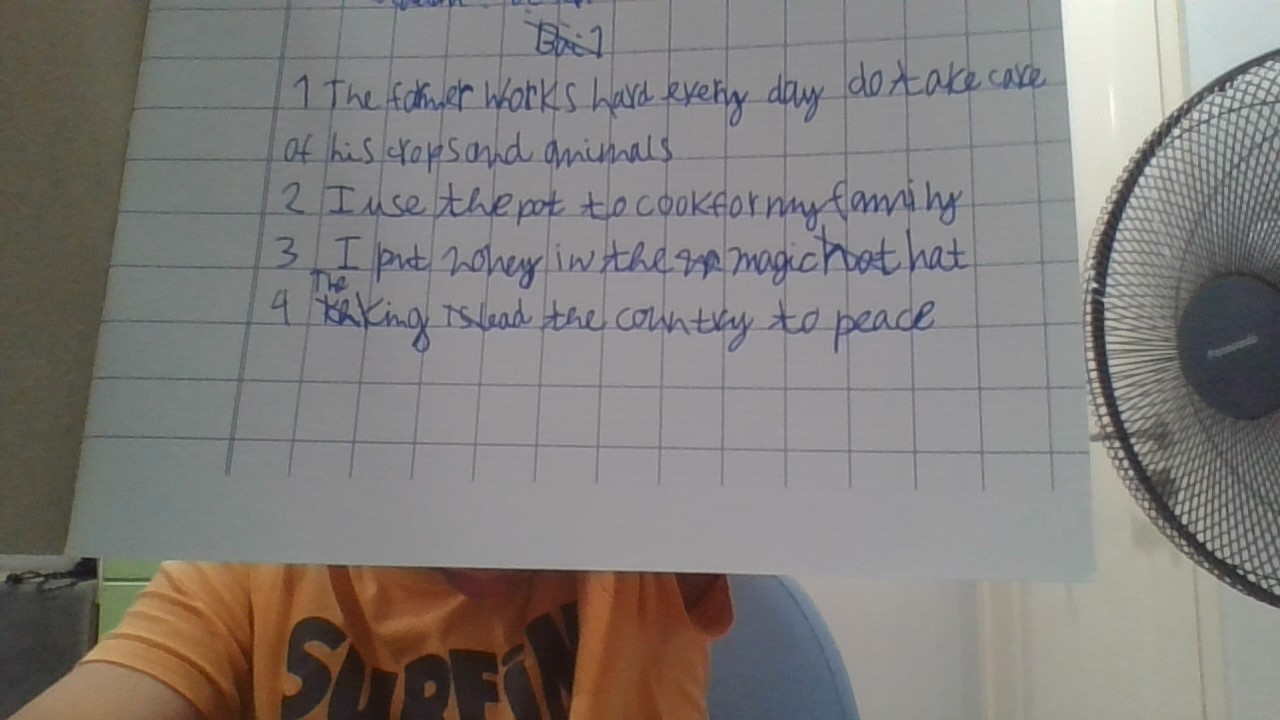 Bài 1
1 The farmer works hard every day do take care
of his crops and animals
2 I use the pot to cook for my family
3 I put money in the magic hat
The
4 king is lead the country to peace
SURFIN